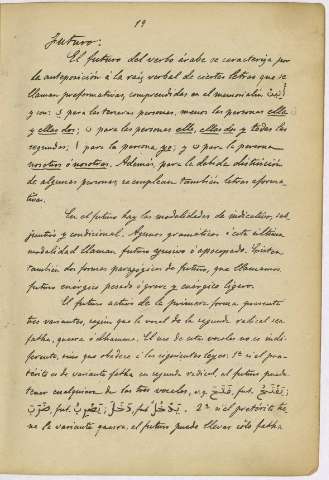 19
Futuro:
El futuro del verbo árabe se caracteriza por
la anteposición á la raíz verbal de ciertas letras que se
llaman preformativas, comprendidas en el memorialin
y son: ي para las terceras personas, menos las personas ella
y ellas dos; ت para las personas ella, ellas dos y todas las
segundas; أ para la persona yo; y ن para la persona
nosotros ó nosotras. Además, para la debida distinción
de algunas personas, se emplean también letras aforma-
tivas.
En el futuro hay las modalidades de indicativo, sub-
juntivo y condicional. Algunos gramáticos á esta última
modalidad llaman futuro yusivo ó apocopado. Existen
también dos formas paragógicas de futuro, que llamamos
futuro enérgico pesado ó grave y enérgico ligero.
El futuro activo de la primera forma presenta
tres variantes, según que la vocal de la segunda radical sea
fatha, quesra ó dhamma. El uso de esta vocal no es indi-
ferente, sino que obedece á las siguientes leyes: 1ª si el pre-
térito es de variante fatha en segunda radical, el futuro puede
tener cualquiera de las tres vocales, v.g. فَتَحَ, fut. يَفْتَحُ;
ضَرَبَ, fut. يَضْرِبُ; دَخَلَ, fut. يَدْخُلُ. 2ª si el pretérito tie-
ne la variante quesra, el futuro puede llevar sólo fatha